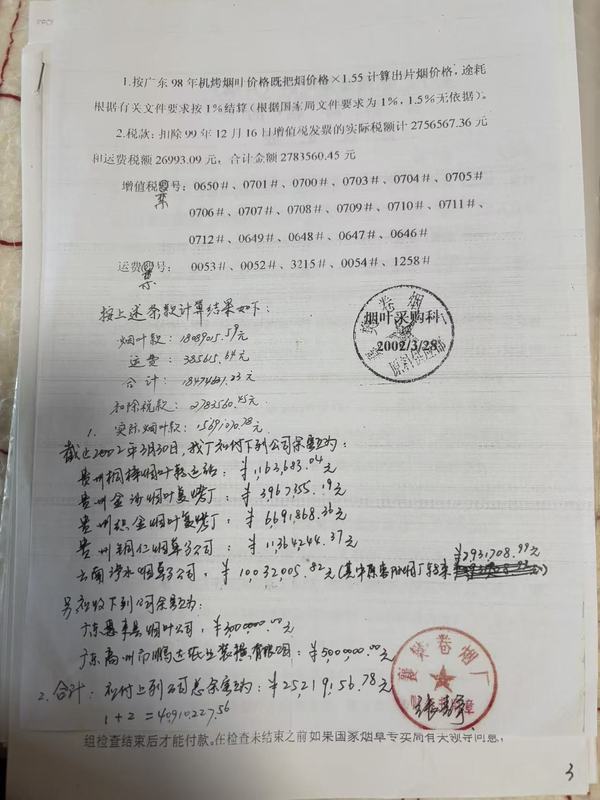 1.按广东98年机烤烟叶价格既把烟价格×1.55计算出片烟价格，途耗
根据有关文件要求按1%结算（根据国家局文件要求为1%，1.5%无依据）。
2.税款：扣除99年12月16日增值税发票的实际税额计2756567.36元
和运费税额26993.09元，合计金额2783560.45元
增值税票号：0650#、0701#、0700#、0703#、0704#、0705#
0706#、0707#、0708#、0709#、0710#、0711#、
0712#、0649#、0648#、0647#、0646#
运费票号：0053#、0052#、3215#、0054#、1258#
按上述条款计算结果如下：
烟叶款：元
运费：385615.64元
合计：元
扣除税款：2783560.45元
1.实际烟叶款：元
烟叶采购科
2002/3/28
截止2002年3月30日，我厂和付下列公司余额为：
贵州桐梓烟叶转运站：¥1,163,683.04元
贵州金沙烟叶复烤厂：¥3967355.19元
贵州织金烟叶复烤厂：¥6691,868.36元
贵州铜仁烟草分公司：¥11,364,244.37元
云南烟草分公司：¥10,032,005.82元（其中原
¥2,931,708.99元
另应收下列公司余额为：
广东惠来县烟叶公司：¥3000,000.00元
广东高州市：¥5,000,000.00元
2.合计：和付上列公司总余额为：¥25,219,156.78元
1+2=40910227.56
组检查结束后才能付款。在检查未结束之前如果国家烟草专卖局有关领导问息，
3